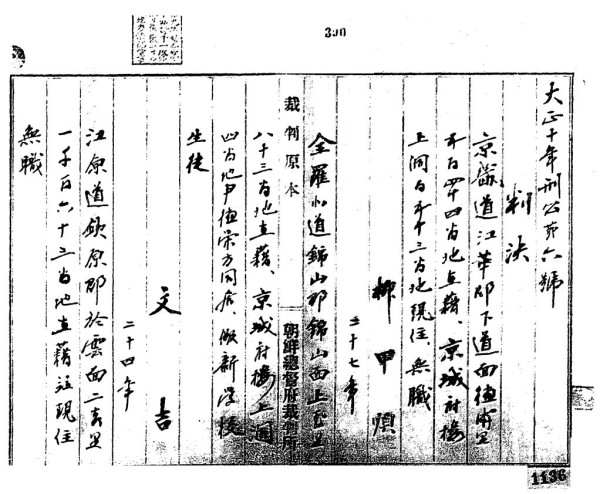 390
大正十年刑公第六號
判決
京畿道江華郡下道面德浦里
五百四十四番地在籍、京城府樓
上洞百五十三番地現住、無職
柳甲順
三十七年
全羅北道錦山郡錦山面上玉里
裁判原本
朝鮮總督府裁判所
八十三番地在籍、京城府樓上洞
四番地尹德榮方同居、儆新學校
生徒
文吉
二十四年
江原道鉄原郡於雲面二吉里
一千百六十三番地在籍並現住
無職
1136